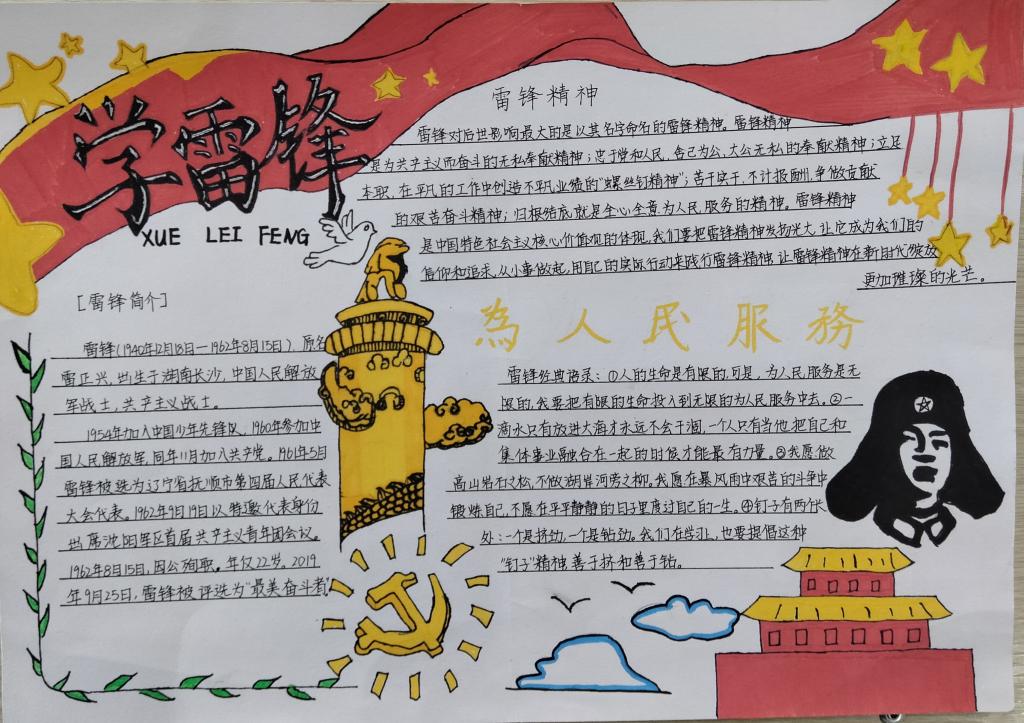 学雷锋
XUE LEI FENG
[雷锋简介]
雷锋(1940年12月18日—1962年8月15日),原名
雷正兴,出生于湖南长沙,中国人民解放
军战士,共产主义战士。
1954年加入中国少年先锋队,1960年参加中
国人民解放军,同年11月加入共产党。1961年5月
雷锋被选为辽宁省抚顺市第四届人民代表
大会代表。1962年9月19日以特邀代表身份
出席沈阳军区首届共产主义青年团会议。
1962年8月15日,因公殉职。年仅22岁。2019
年9月25日,雷锋被评选为“最美奋斗者”
雷锋精神
雷锋对后世影响最大的是以其名字命名的雷锋精神。雷锋精神
是为共产主义而奋斗的无私奉献精神;忠于党和人民、舍己为公、大公无私的奉献精神;立足
本职、在平凡的工作中创造不平凡业绩的“螺丝钉精神”;苦干实干、不计报酬、争做贡献
的艰苦奋斗精神;归根结底就是全心全意为人民服务的精神。雷锋精神
是中国特色社会主义核心价值观的体现,我们要把雷锋精神发扬光大,让它成为我们的
信仰和追求,从小事做起,用自己的实际行动来践行雷锋精神,让雷锋精神在新时代绽放
更加璀璨的光芒。
為人民服務
雷锋经典语录:①人的生命是有限的,可是,为人民服务是无
限的,我要把有限的生命投入到无限的为人民服务中去。②一
滴水只有放进大海才永远不会干涸,一个人只有当他把自己和
集体事业融合在一起的时候才能最有力量。③我愿做
高山岩石之松,不做湖岸河旁之柳。我愿在暴风雨中艰苦的斗争中
锻炼自己,不愿在平平静静的日子里度过自己的一生。④钉子有两个长
处:一个是挤劲,一个是钻劲。我们在学习上,也要提倡这种
“钉子”精神,善于挤和善于钻。